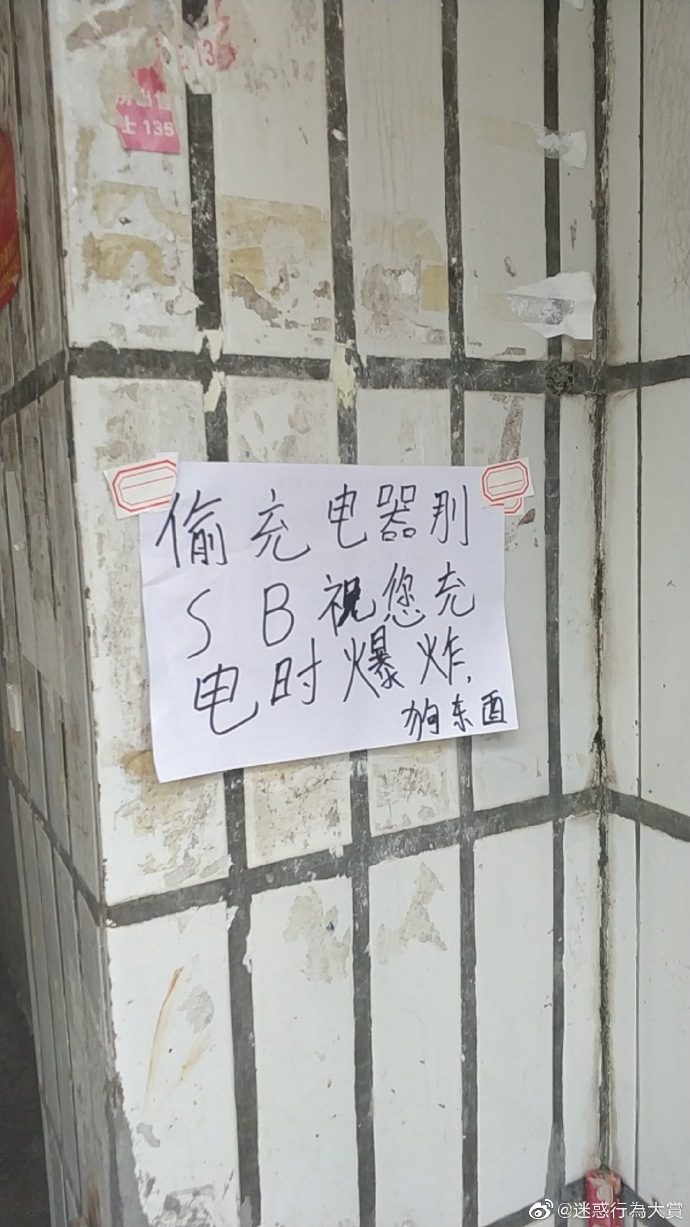 房出售
上 135
偷充电器那
SB祝您充
电时爆炸,
狗东酉
@迷惑行為大賞